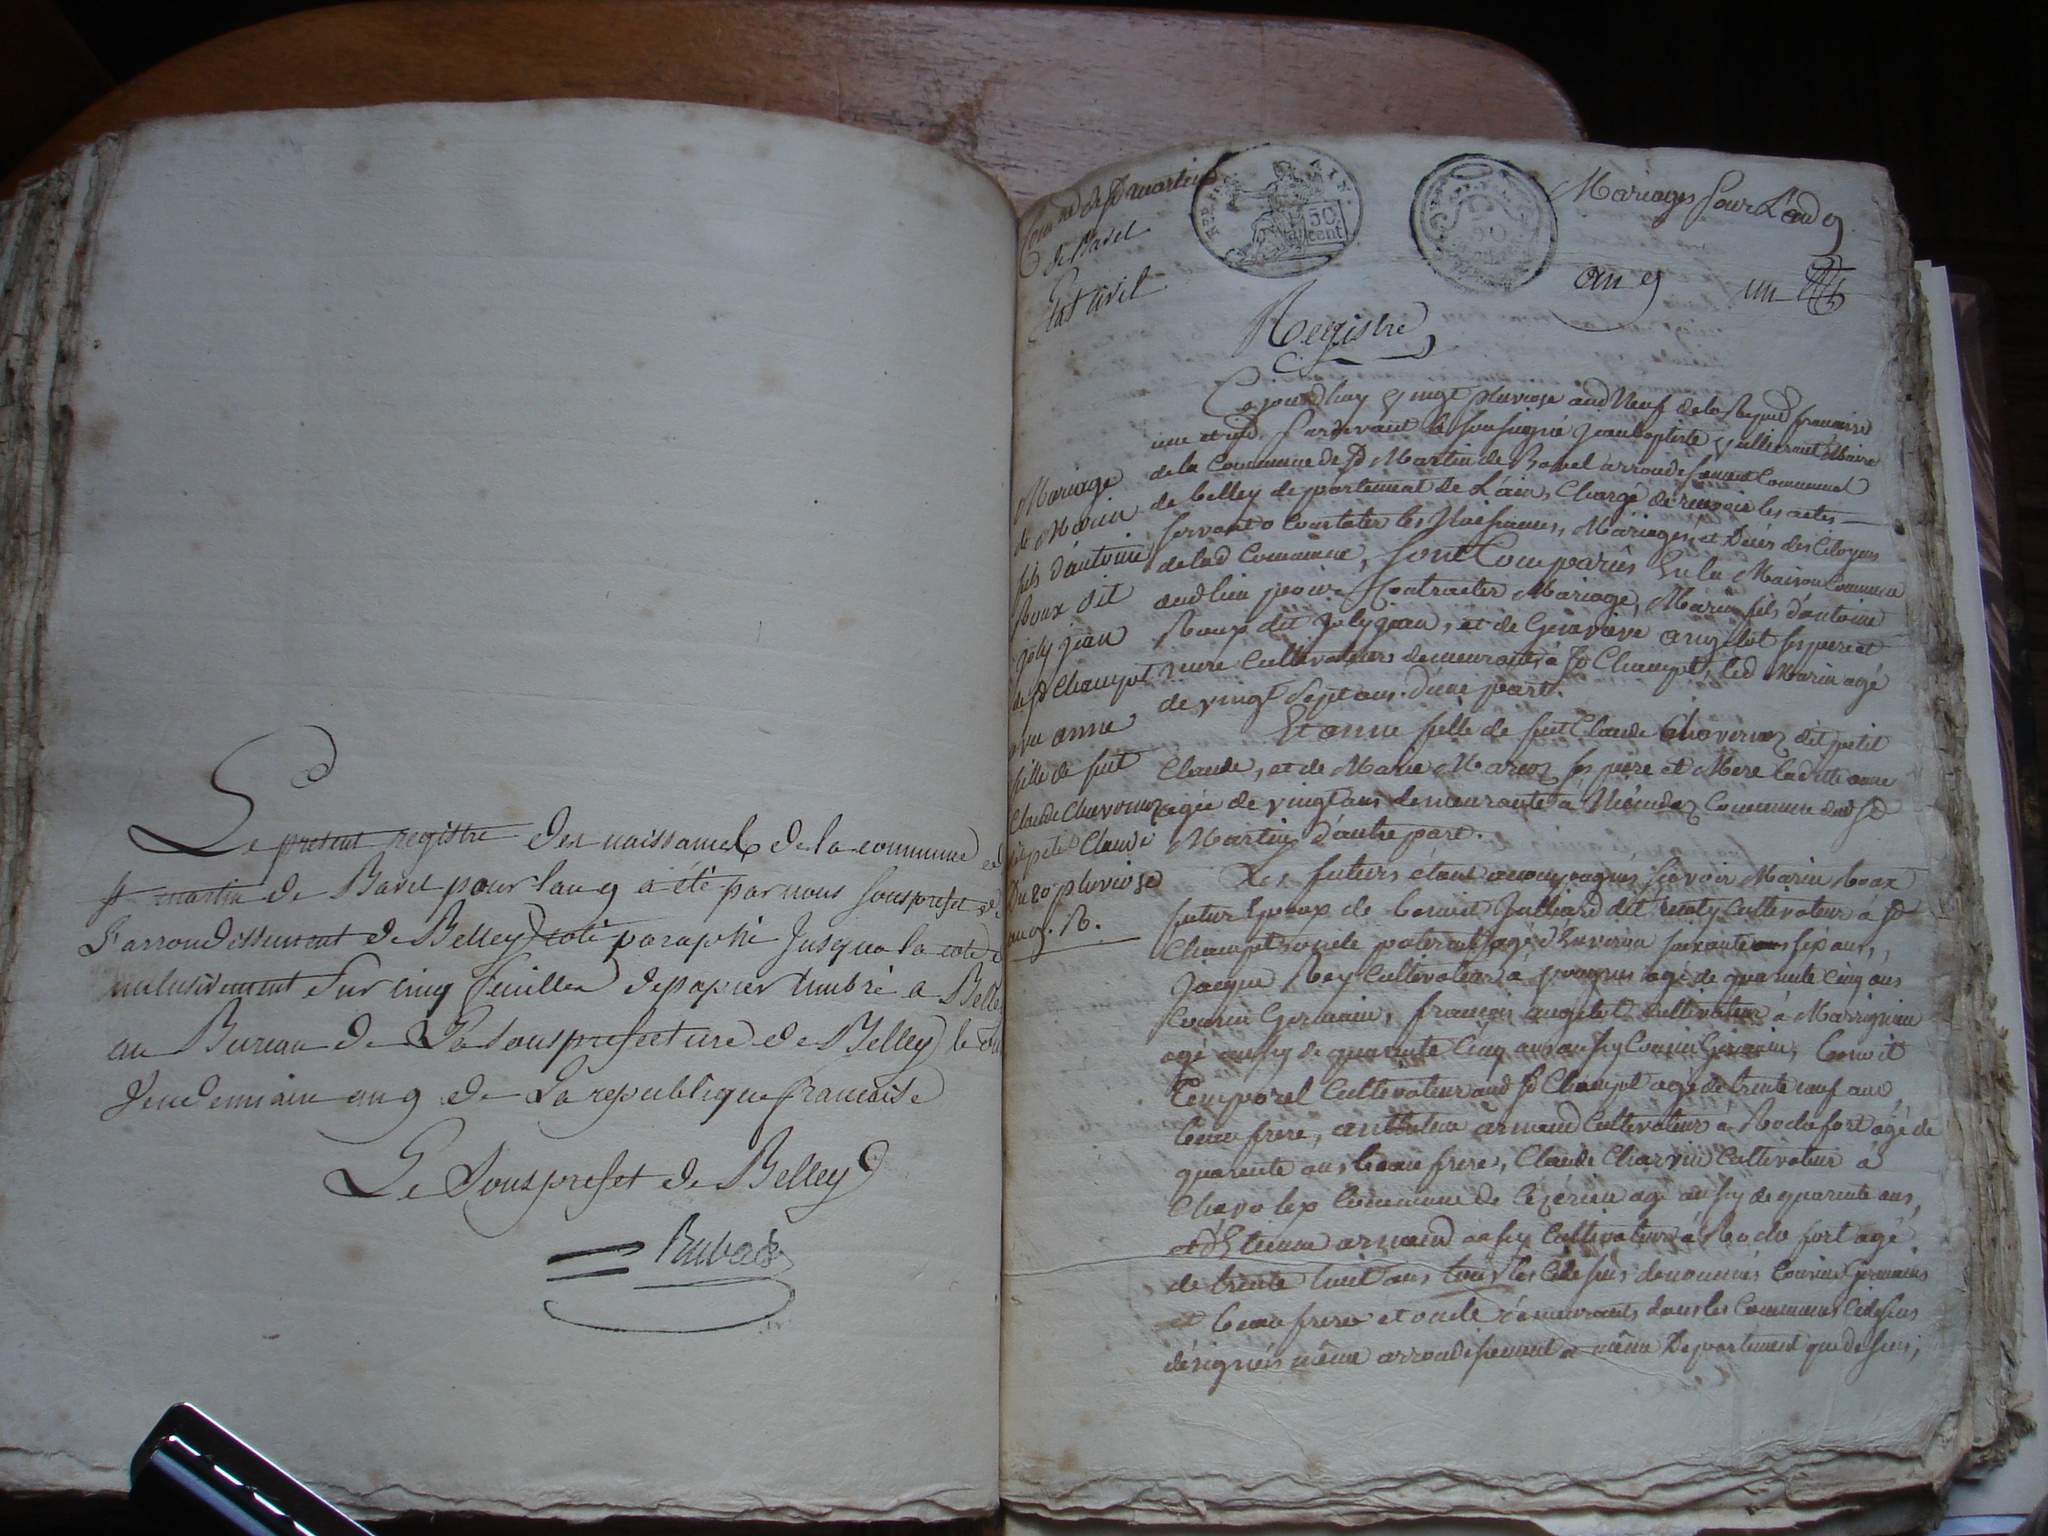 Le present registre des naissances de la commune de
st martin de Bavel pour l'an 9 a été par nous sousprefet de
l'arrondissement de Belley coté paraphé jusqu'a la cote
inclusivement sur cinq feuilles de papier timbré a Belley
au Bureau de La sousprefecture de Belley le
Vendemiaire an 9 de La republique francaise
Le Sousprefet de Belley
de St martin
de Bavel
Etat Civil
50
cent
50
Mariages pour L'an 9
an 9 un
Registre
Mariage
de Marin
fils d'antoine
Roux dit
joly jean
de St Champt
avec anne
fille de feut
Claude Chavornoz
petit Claude
Du 20 pluviose
an 9. B.
Ce jourdhuy vingt pluviose and Neuf de la Repu française
une et ind. Pardevant le soussigné jean baptiste Maire
de la Commune de St Martin de Bavel arrondissement Communal
de belley departement de L'ain, Chargé de recevoir les actes
servant a Constater les Naissances, Mariages, et Décès des Citoyens
de lad Commune, sont Comparus En la Maison Commune
aud lieu pour Contracter Mariage, Marin fils d'antoine
Roux dit joly jean, et de Géneviève angelot ses pere et
mere Cultivateurs demeurants à St Champt, led Marin agé
de vingt sept ans. d'une part.
Et anne fille de feut Claude Chavornoz dit petit
Claude, et de Marie Marcoz ses pere et Mere laditte anne
agée de vingt ans demeurante à Commune dud St
Martin, d'autre part.
Les futurs étant accompagnés sçavoir Marin Roux
futur Epoux de benoit Julliard dit Cultivateur à St
Champt oncle paternel, agé d'Environ soixante six ans,
Jacque Rey Cultivateur a pougnes agé de quarante cinq ans
Cousin Germain, françois angelot Cultivateur à Marrignieu
agé aussy de quarante Cinq ans aussy Cousin Germain, benoit
Temporel Cultivateur aud St Champt agé de trente neuf ans
beau frere, anthelme armand Cultivateur à Rochefort agé de
quarente ans beau frere, Claude Charvin Cultivateur à
Chavolex Commune de Cezérieu agé aussy de quarente ans,
et d'Etienne armand aussy Cultivateur à Roche fort agé
de trente huit ans tous les Cidessus denommés Cousins Germains
et beau freres et oncle demeurants dans les Communes Cidessus
désignées même arrondissement et même Departement que dessus,